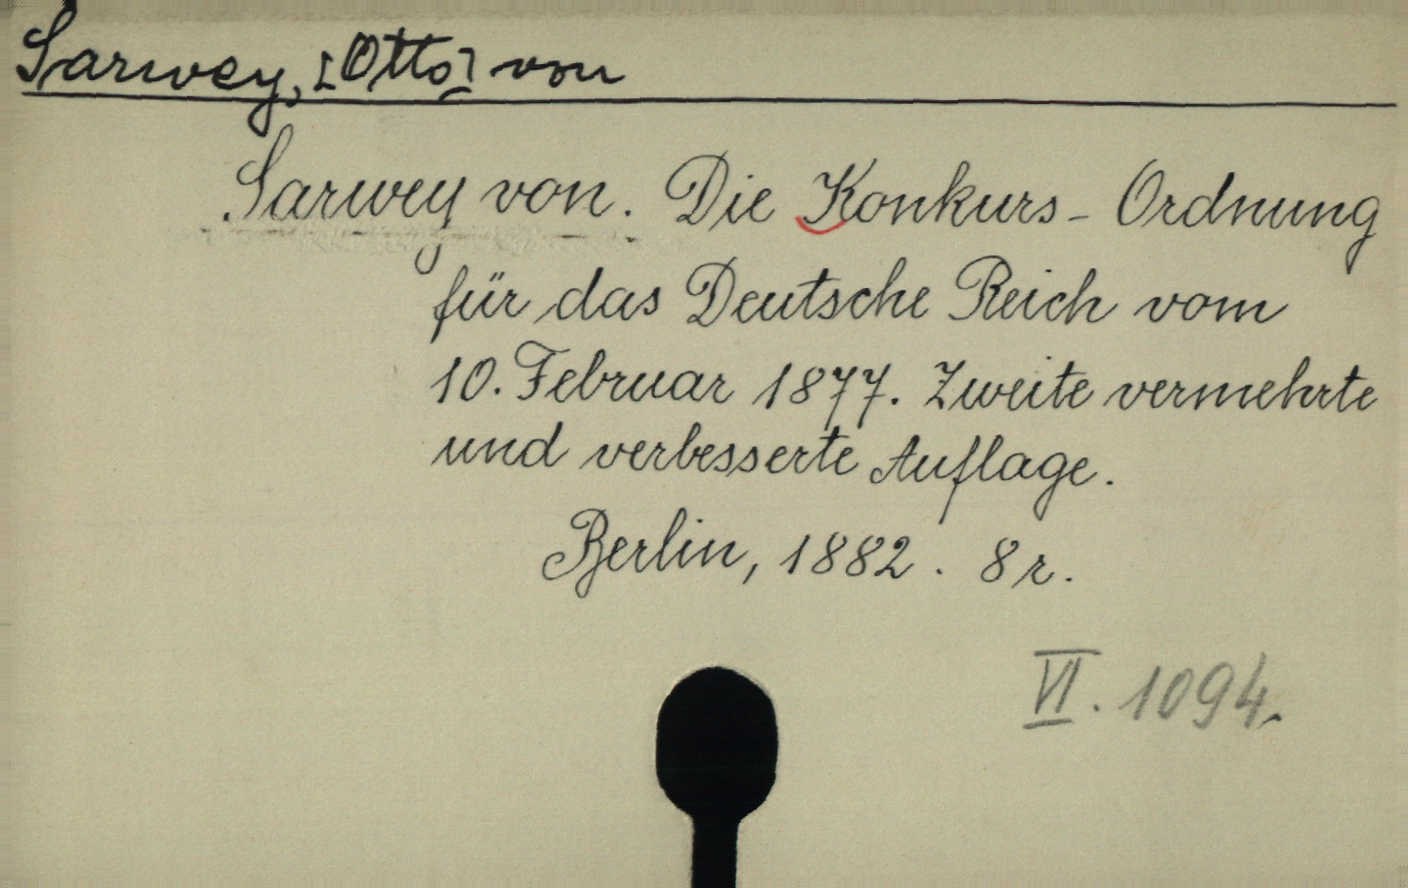 Sarwey, [Otto] von
Sarwey von. Die Konkurs-Ordnung
für das Deutsche Reich vom
10. Februar 1877. Zweite vermehrte
und verbesserte Auflage.
Berlin, 1882. 8r.
VI. 1094.